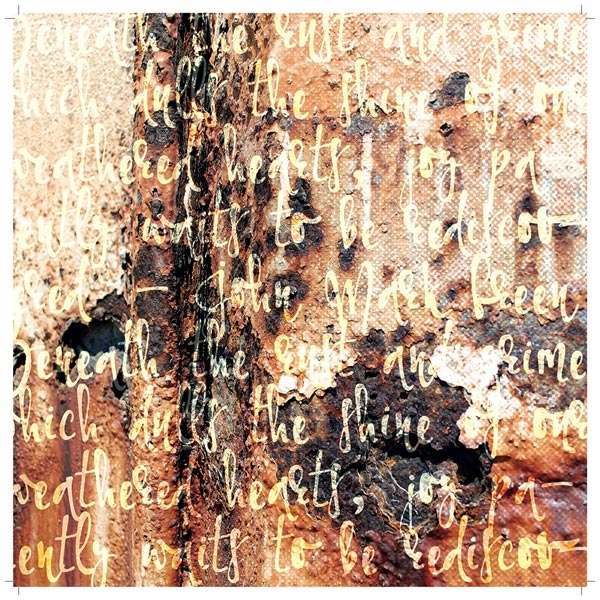 Beneath the rust and grime
hich dulls the shine of our
weathered hearts, joy pa
ently waits to be rediscov-
ered - John Mark Green
Beneath the rust and grime
hich dulls the shine of our
weathered hearts, joy pa-
ently waits to be rediscov-